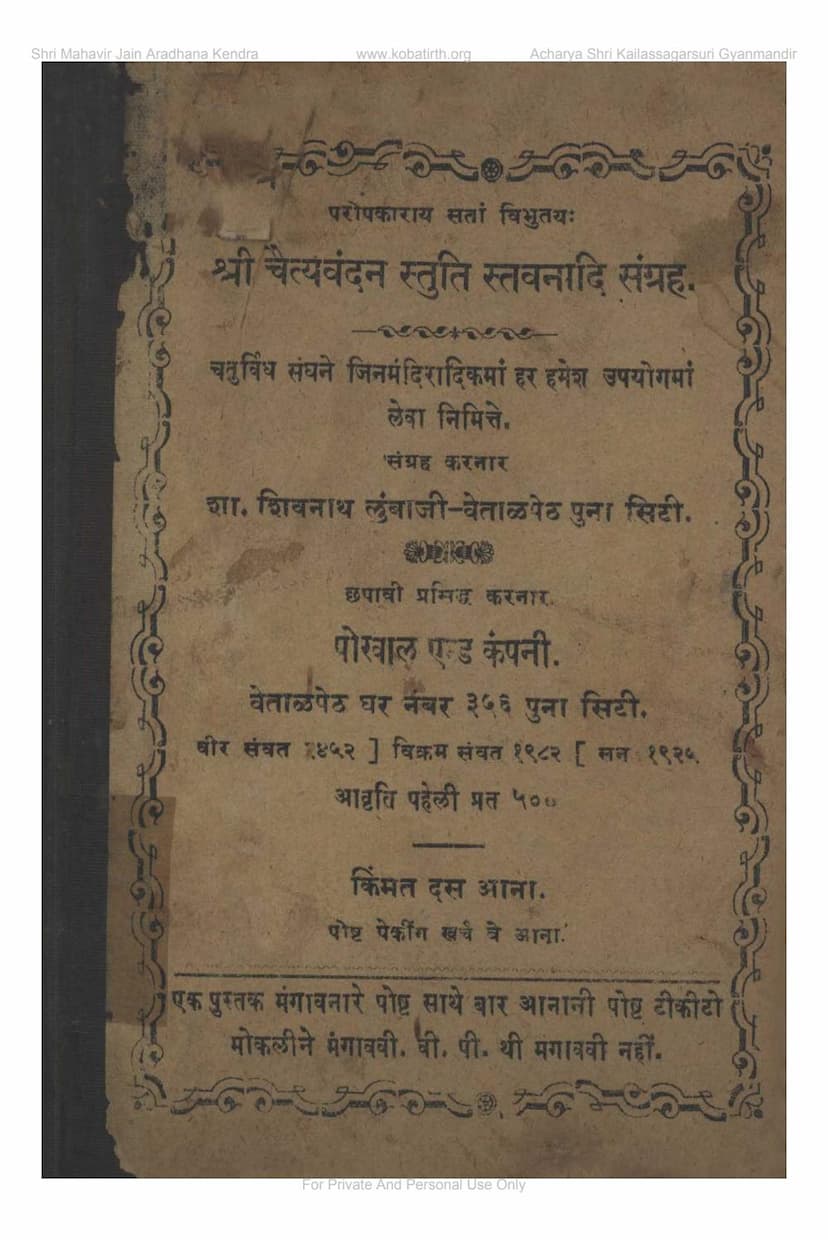 Shri Mahavir Jain Aradhana Kendra www.kobatirth.org Acharya Shri Kailassagarsuri Gyanmandir
परोपकाराय सतां विभुतयः
श्री चैत्यवंदन स्तुति स्तवनादि संग्रह.
चतुर्विध संघने जिनमंदिरादिकमां हर हमेश उपयोगमां
लेवा निमित्ते.
संग्रह करनार
शा. शिवनाथ लुंबाजी-वेताळपेठ पुना सिटी.
छपावी प्रसिद्ध करनार
पोरवाल एन्ड कंपनी.
वेताळपेठ घर नंबर ३५६ पुना सिटी.
वीर संवत २४५२ ] विक्रम संवत १९८२ [ सन १९२५
आवृति पहेली प्रत ५००
किंमत दस आना.
पोष्ट पेकींग खर्च बे आना.
एक पुस्तक मंगावनारे पोष्ट साथे बार आनानी पोष्ट टीकीटो
मोकलीने मंगाववी. वी. पी. थी मगाववी नहीं.
For Private And Personal Use Only